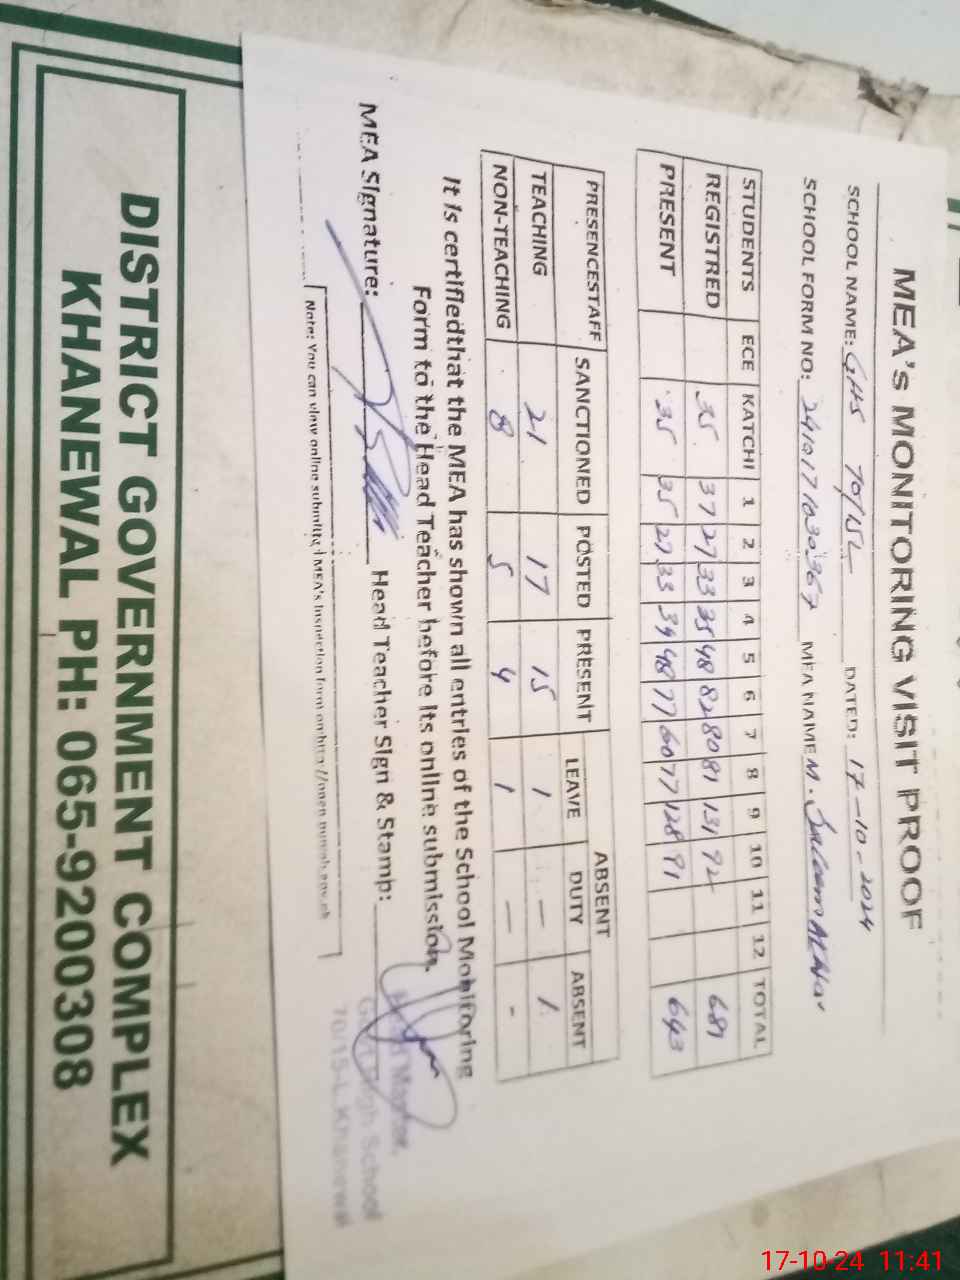 MEA's MONITORING VISIT PROOF
SCHOOL NAME: GHS 70/15L DATED: 17-10-2024
SCHOOL FORM NO: MEA NAME M. Saleem
STUDENTS ECE KATCHI 1 2 3 4 5 6 7 8 9 10 11 12 TOTAL
REGISTRED 35 37 27 33 35 48 82 80 81 131 92 681
PRESENT 35 35 27 33 34 48 77 60 77 128 91 643
PRESENCESTAFF SANCTIONED POSTED PRESENT ABSENT
LEAVE DUTY ABSENT
TEACHING 21 17 15 1 — 1
NON-TEACHING 8 5 4 1 — -
It is certifiedthat the MEA has shown all entries of the School Monitoring
Form to the Head Teacher before its online submission.
MEA Signature: Head Teacher Sign & Stamp:
Head Master,
Govt. High School
70/15-L, Khanewal
Note: You can view online submitted MEA's Inspection form on http://open.punjab.gov.pk
DISTRICT GOVERNMENT COMPLEX
KHANEWAL PH: 065-9200308
17-10-24 11:41